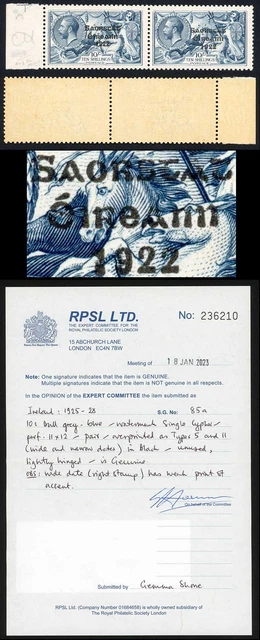 Saorstát Saorstát
Éireann Éireann
1922 1922
TEN SHILLINGS TEN SHILLINGS
Saorstát
Éireann
1922
RPSL LTD.
THE EXPERT COMMITTEE FOR THE
ROYAL PHILATELIC SOCIETY LONDON
No: 236210
15 ABCHURCH LANE
LONDON EC4N 7BW
Meeting of 18 JAN 2023
Note: One signature indicates that the item is GENUINE.
Multiple signatures indicate that the item is NOT genuine in all respects.
In the OPINION of the EXPERT COMMITTEE the item submitted as
Ireland: 1925-28 S.G. No: 85a
10s dull grey-blue - watermark Single Cypher -
perf: 11x12 - pair - overprinted as Types 5 and 11
(wide and narrow dates) in Black - unused,
lightly hinged - is Genuine
OBS: wide date (right stamp) has weak print of
accent.
On behalf of the Committee
Submitted by Gemma Shore
RPSL Ltd. (Company Number 01684658) is wholly owned subsidiary of
The Royal Philatelic Society London